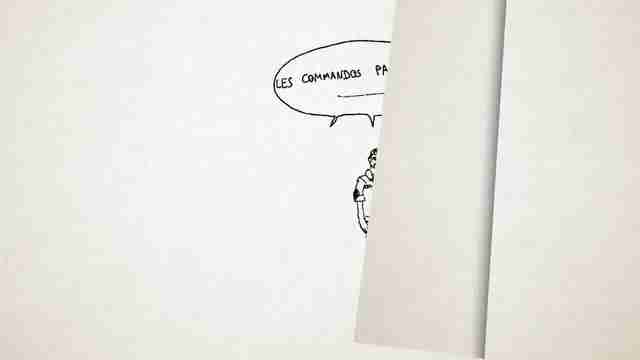 LES COMMANDOS